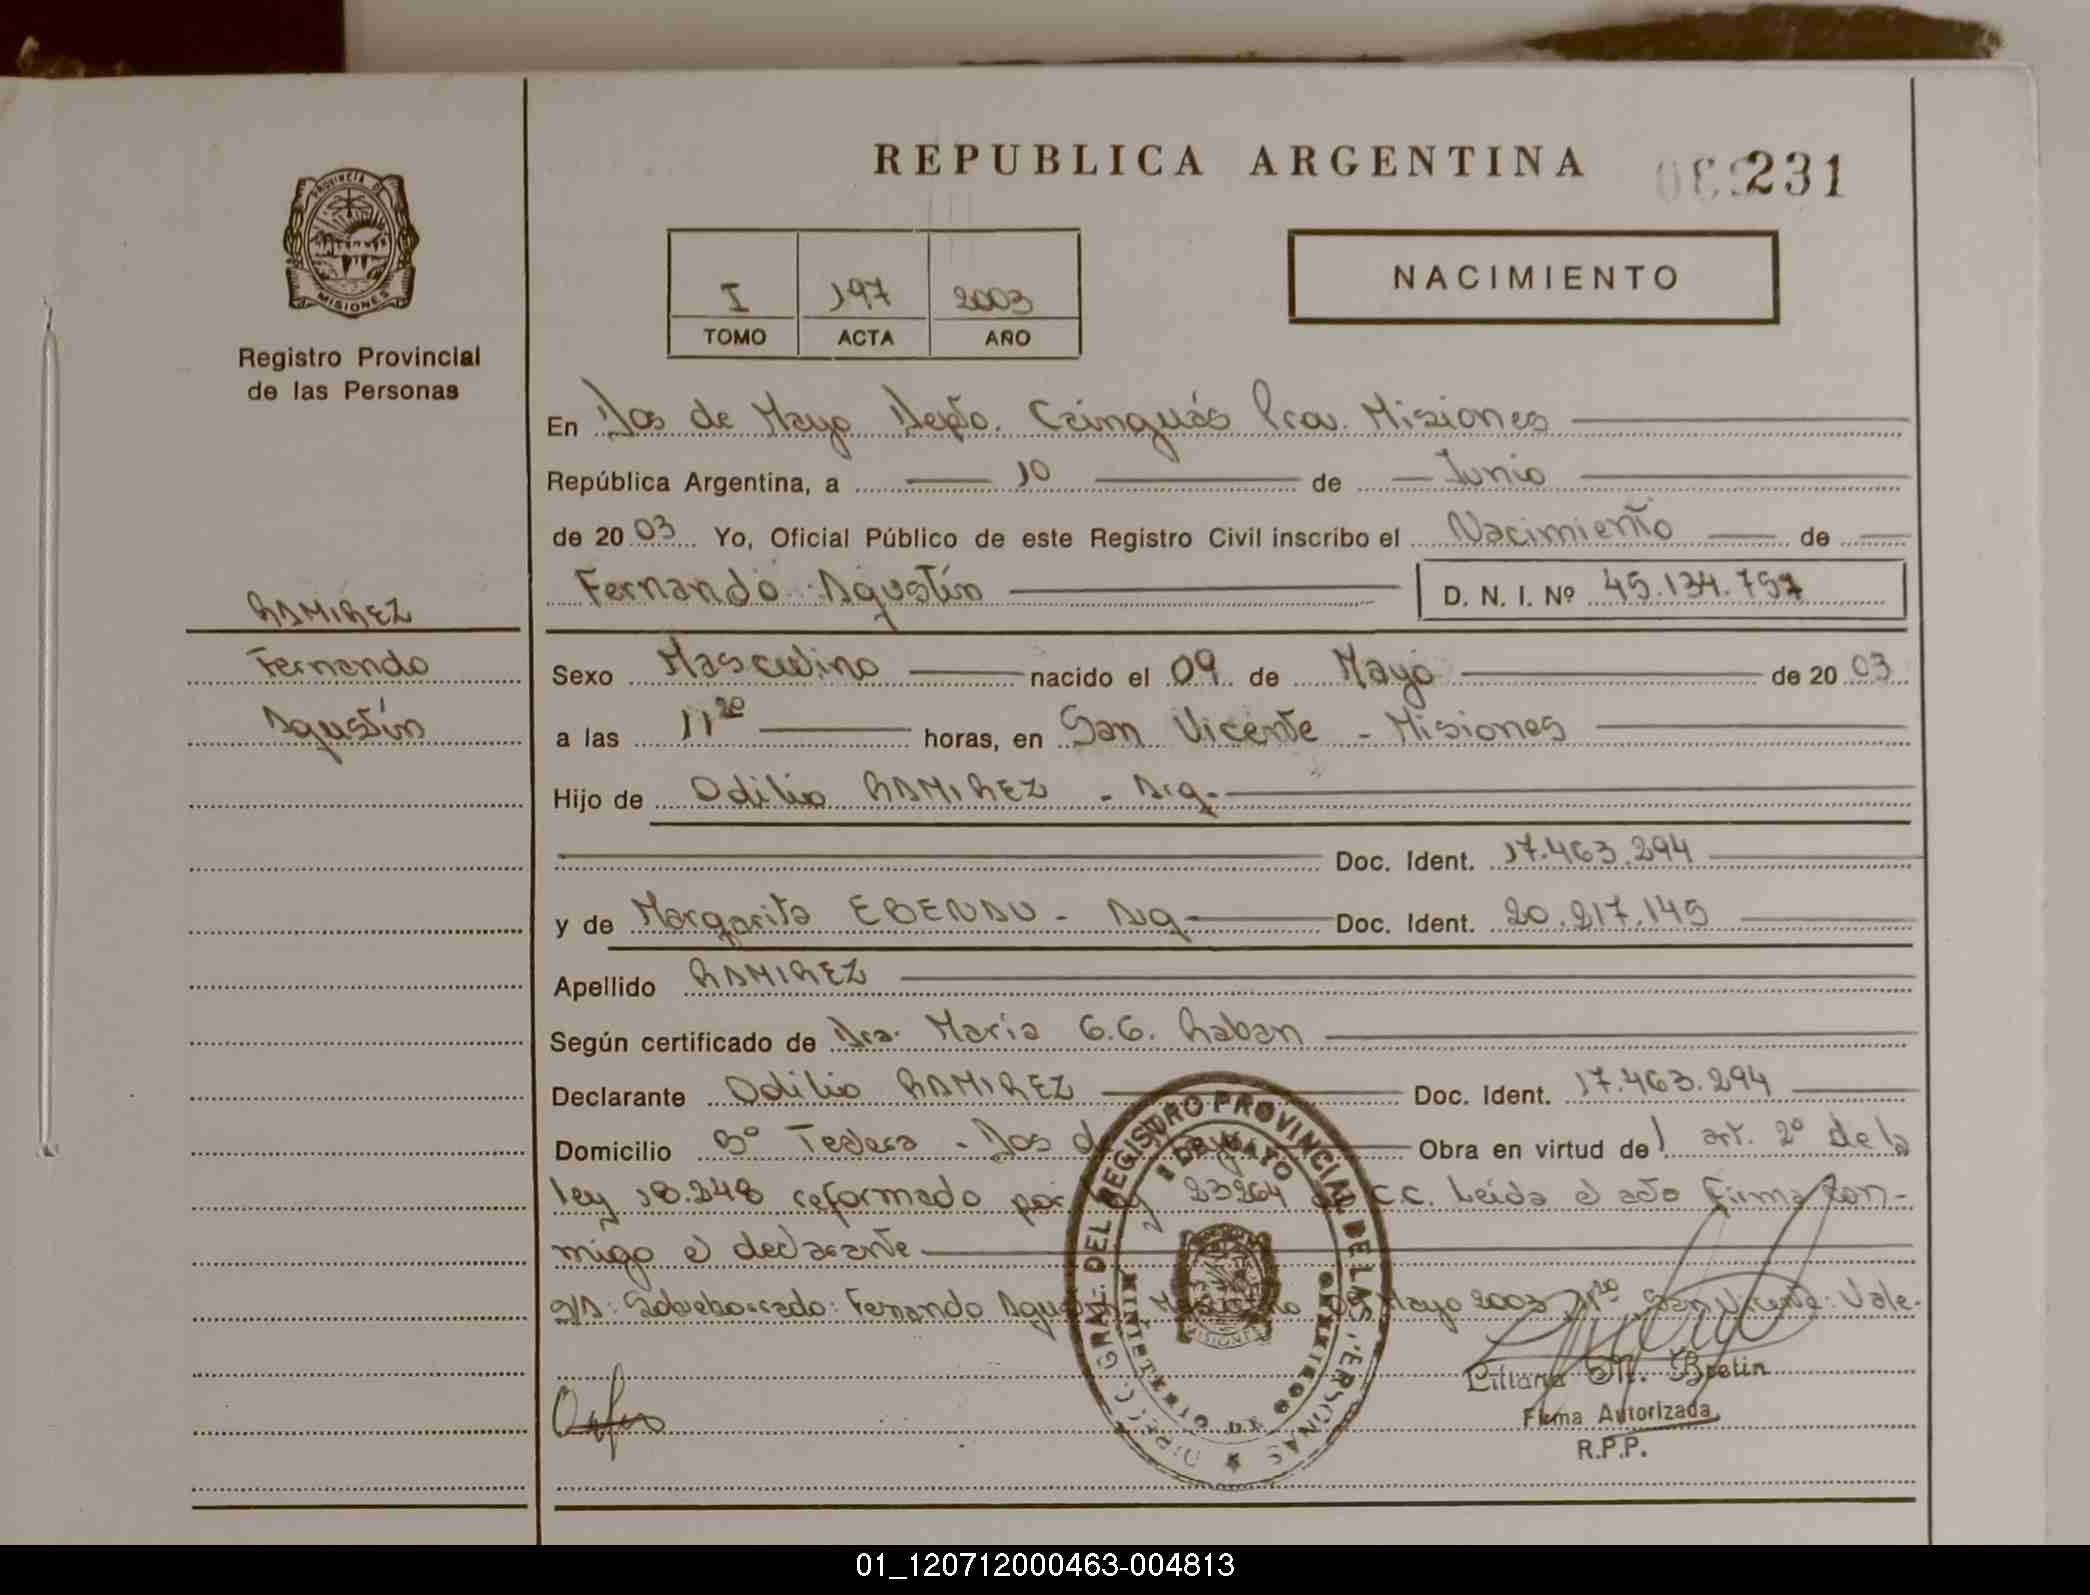 REPUBLICA ARGENTINA
231
PROVINCIA DE
MISIONES
Registro Provincial
de las Personas
NACIMIENTO
I 197 2003
TOMO ACTA AÑO
En Dos de Mayo Depto. Cainguás Prov. Misiones
República Argentina, a 10 de Junio
de 2003 Yo, Oficial Público de este Registro Civil inscribo el Nacimiento de
Fernando Agustín D. N. I. Nº 45.134.757
RAMIREZ
Fernando
Agustín
Sexo Masculino nacido el 09 de Mayo de 2003
a las 11²⁰ horas, en San Vicente - Misiones
Hijo de Odilio RAMIREZ - Arg-
Doc. Ident. 17.463.294
y de Margarita - Arg Doc. Ident. 20.217.145
Apellido RAMIREZ
Según certificado de Dra. Maria G.G. Raban
Declarante Odilio RAMIREZ Doc. Ident. 17.463.294
Domicilio Bº Tedera - Dos de Mayo Obra en virtud del art. 2º de la
ley 18.248 reformado por ley 23264 C.C. Leída el acta firma con-
migo el declarante
Sobreborrado: Fernando Agustín Masculino 09 Mayo 2003 11²⁰ San Vicente: Vale-
DIRECC. GRAL. DEL REGISTRO PROVINCIAL DE LAS PERSONAS
MISIONES
Liliana M. Bretin
Firma Autorizada
R.P.P.
01_120712000463-004813